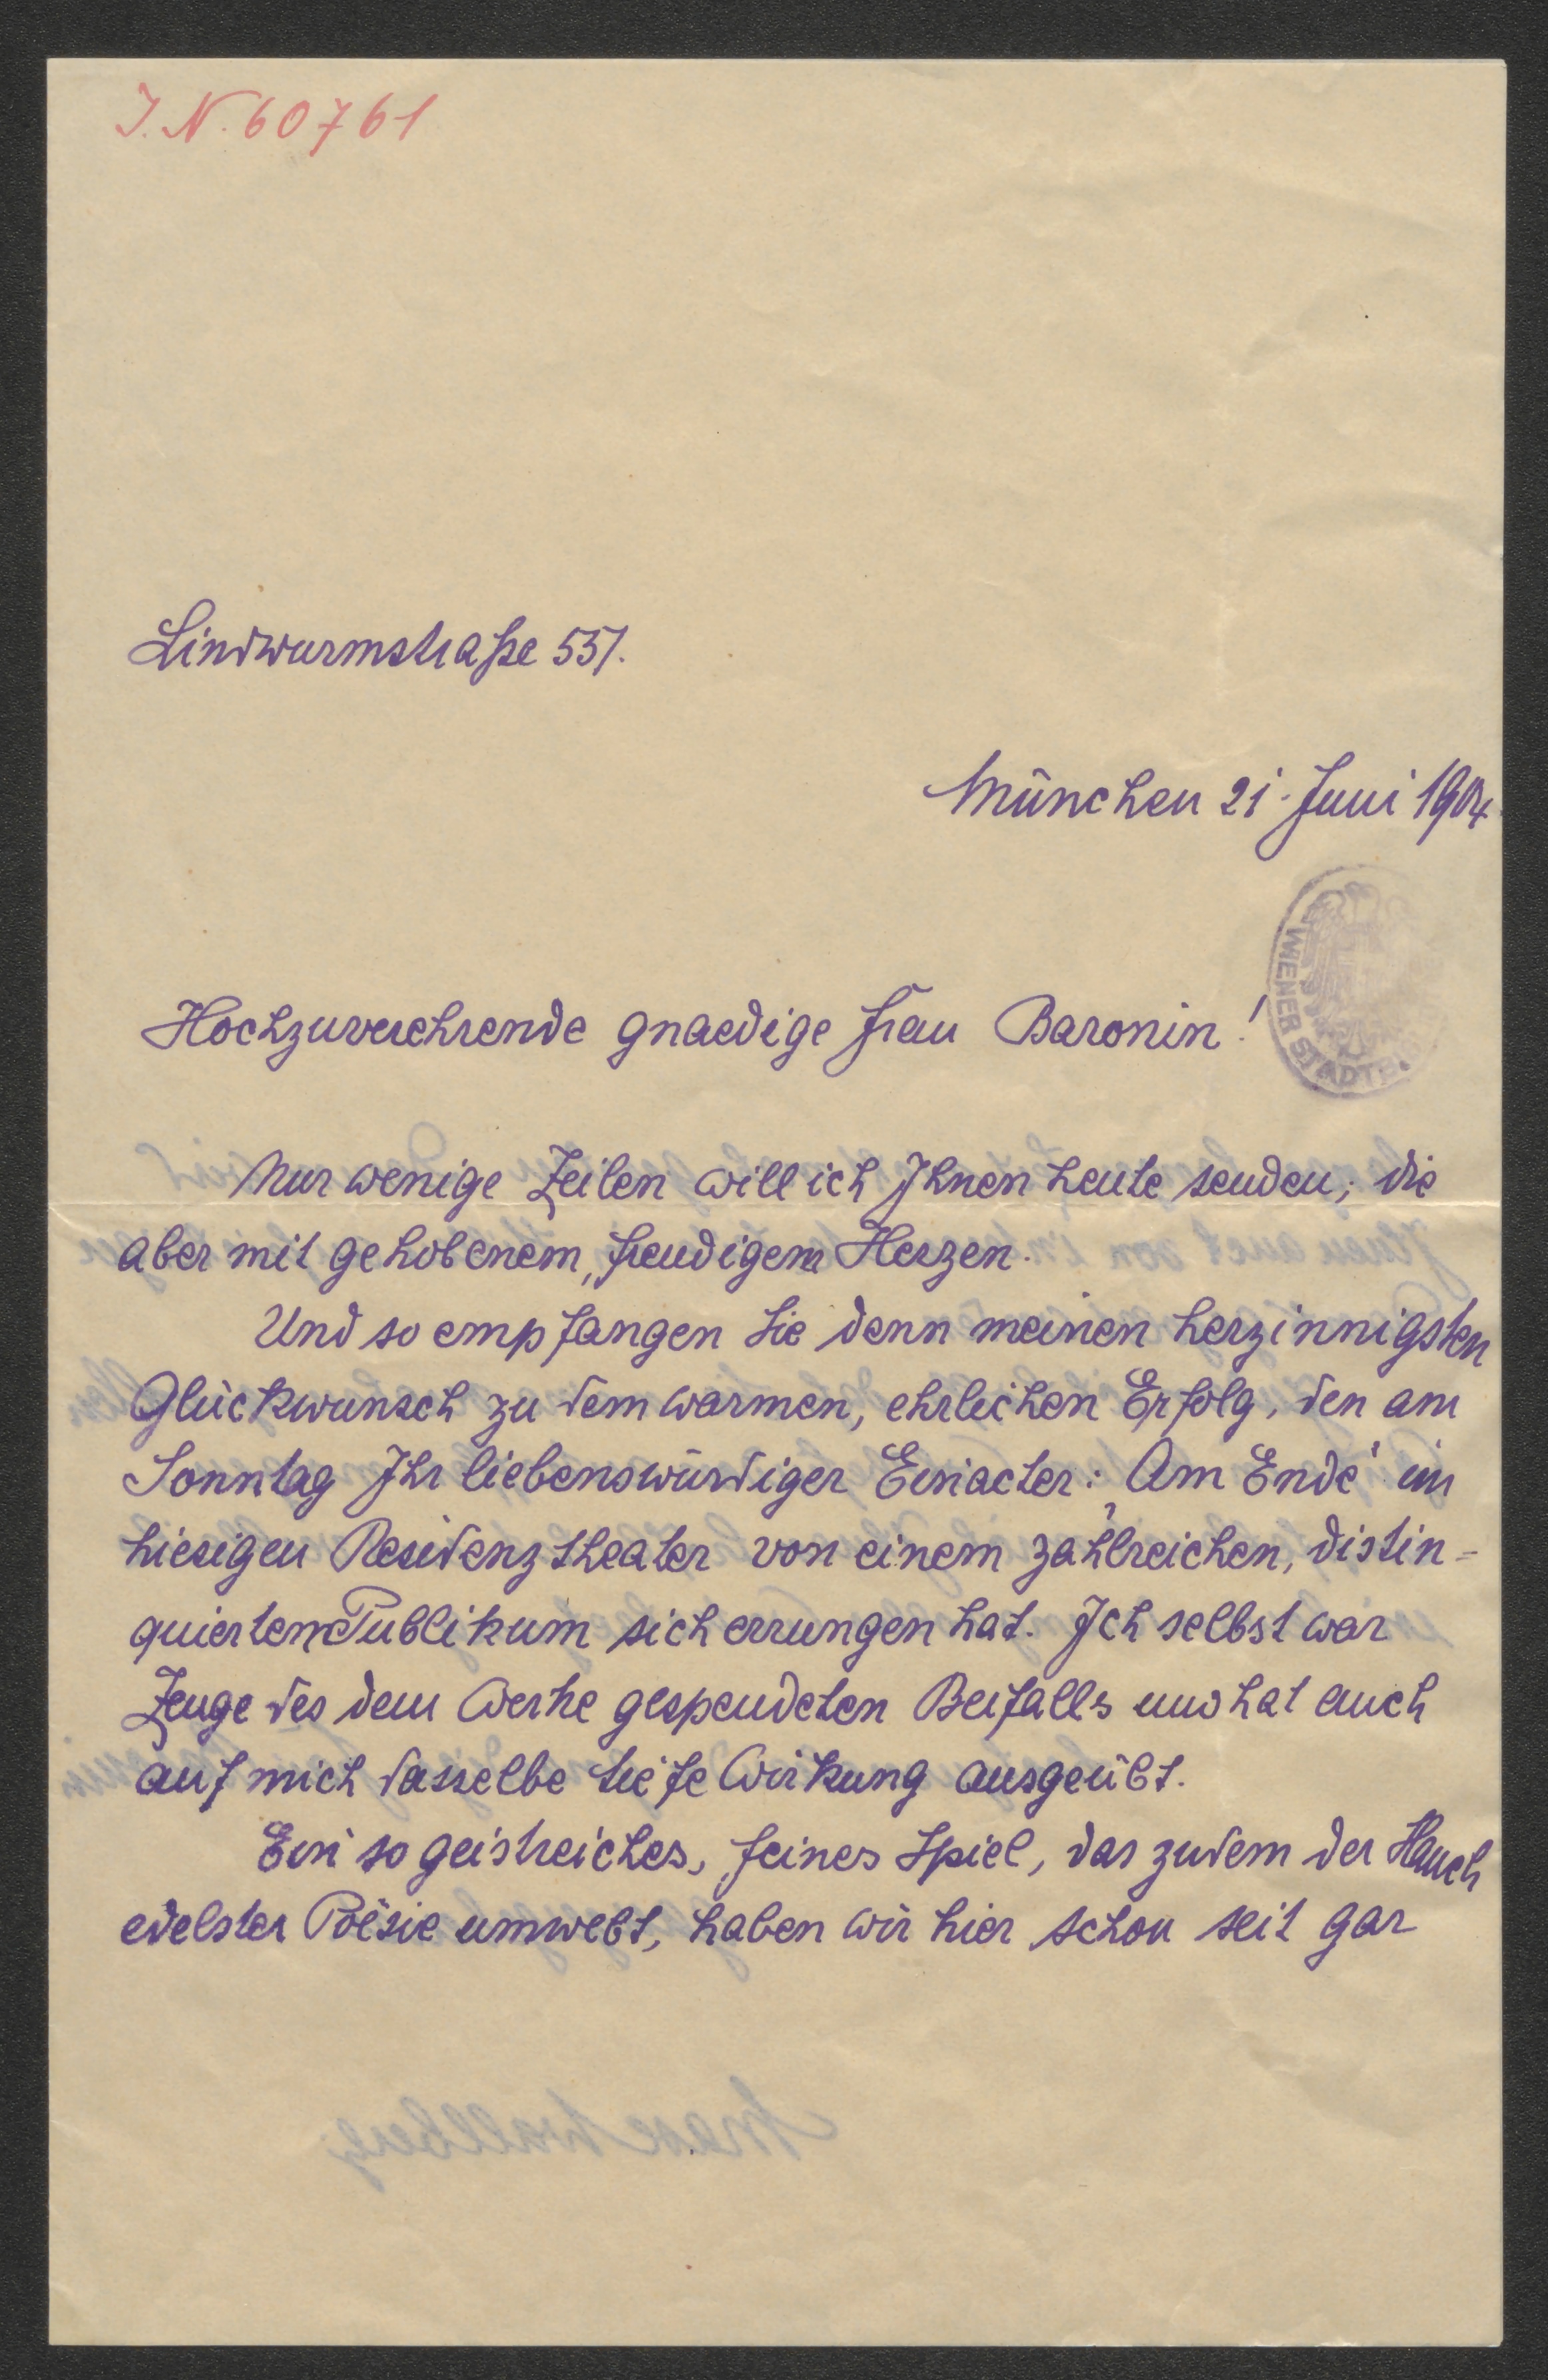 J. N. 60761
Lindwurmstraße 55/.
München 21. Juni 1904
WIENER STADTB
Hochzuverehrende gnaedige Frau Baronin!
Nur wenige Zeilen will ich Ihnen heute senden; die
aber mit gehobenem, freudigem Herzen.
Und so empfangen Sie denn meinen herzinnigsten
Glückwunsch zu dem warmen, ehrlichen Erfolg, den am
Sonntag Ihr liebenswürdiger Einacter: ‚Am Ende‘ im
hiesigen Residenztheater von einem zahlreichen, distin-
quierten Publikum sich errungen hat. Ich selbst war
Zeuge des dem Werke gespendeten Beifalls und hat auch
auf mich dasselbe tiefe Wirkung ausgeübt.
Ein so geistreiches, feines Spiel, das zudem der Hauch
edelster Poësie umwebt, haben wir hier schon seit gar